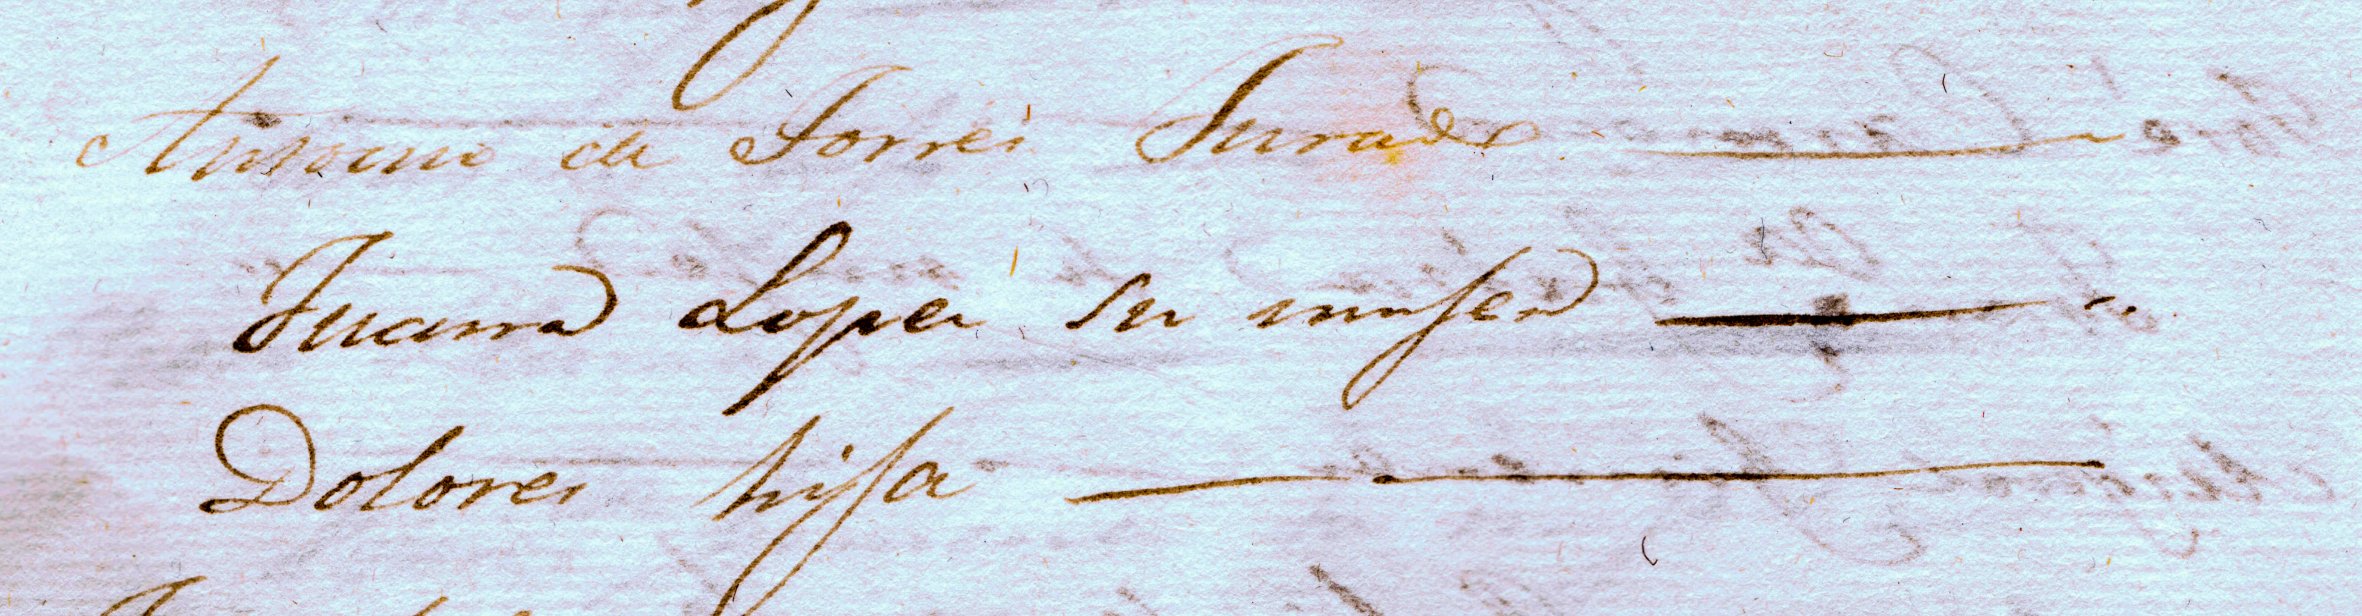 Antonio de Torres Jurado
Juana Lopes su muger
Dolores hija